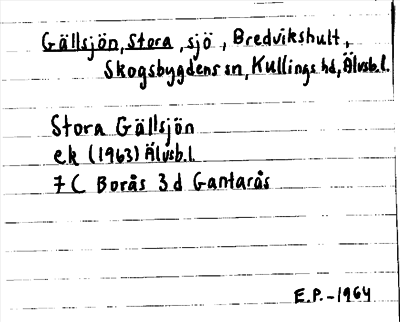 Gällsjön, Stora, sjö, Bredvikshult,
Skogsbygdens sn, Kullings hd, Älvsb.l.
Stora Gällsjön
ek (1963) Älvsb.l.
7 C Borås 3 d Gantarås
E.P.-1964